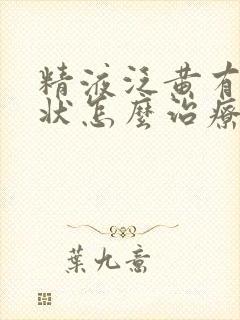 精液泛黄有
状怎麼治療
葉九意